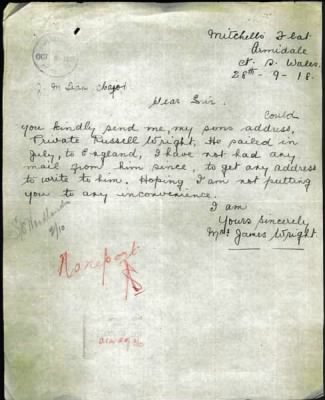 Mitchells Flat
Armidale
N. S. Wales.
28th - 9 - 18.
OCT
Dear Sir.
Could
you kindly send me, my sons address,
Private Russell Wright, He sailed in
July, to England, I have not had any
mail from him since, to get any address
to write to him. Hoping I am not putting
you to any inconvenience.
I am
Yours Sincerely
Mrs James Wright.
No report